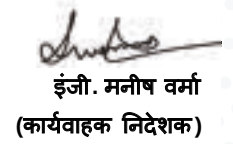 इंजी. मनीष वर्मा
(कार्यवाहक निदेशक)